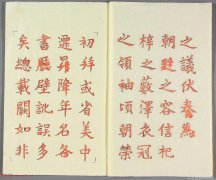 之議伏奏為
朝之容信杞
梓之藪澤衣冠
之領袖頃朝榮
初拜或省美中
遷昇降年名各
書廳壁訛誤多
矣總載闕如非